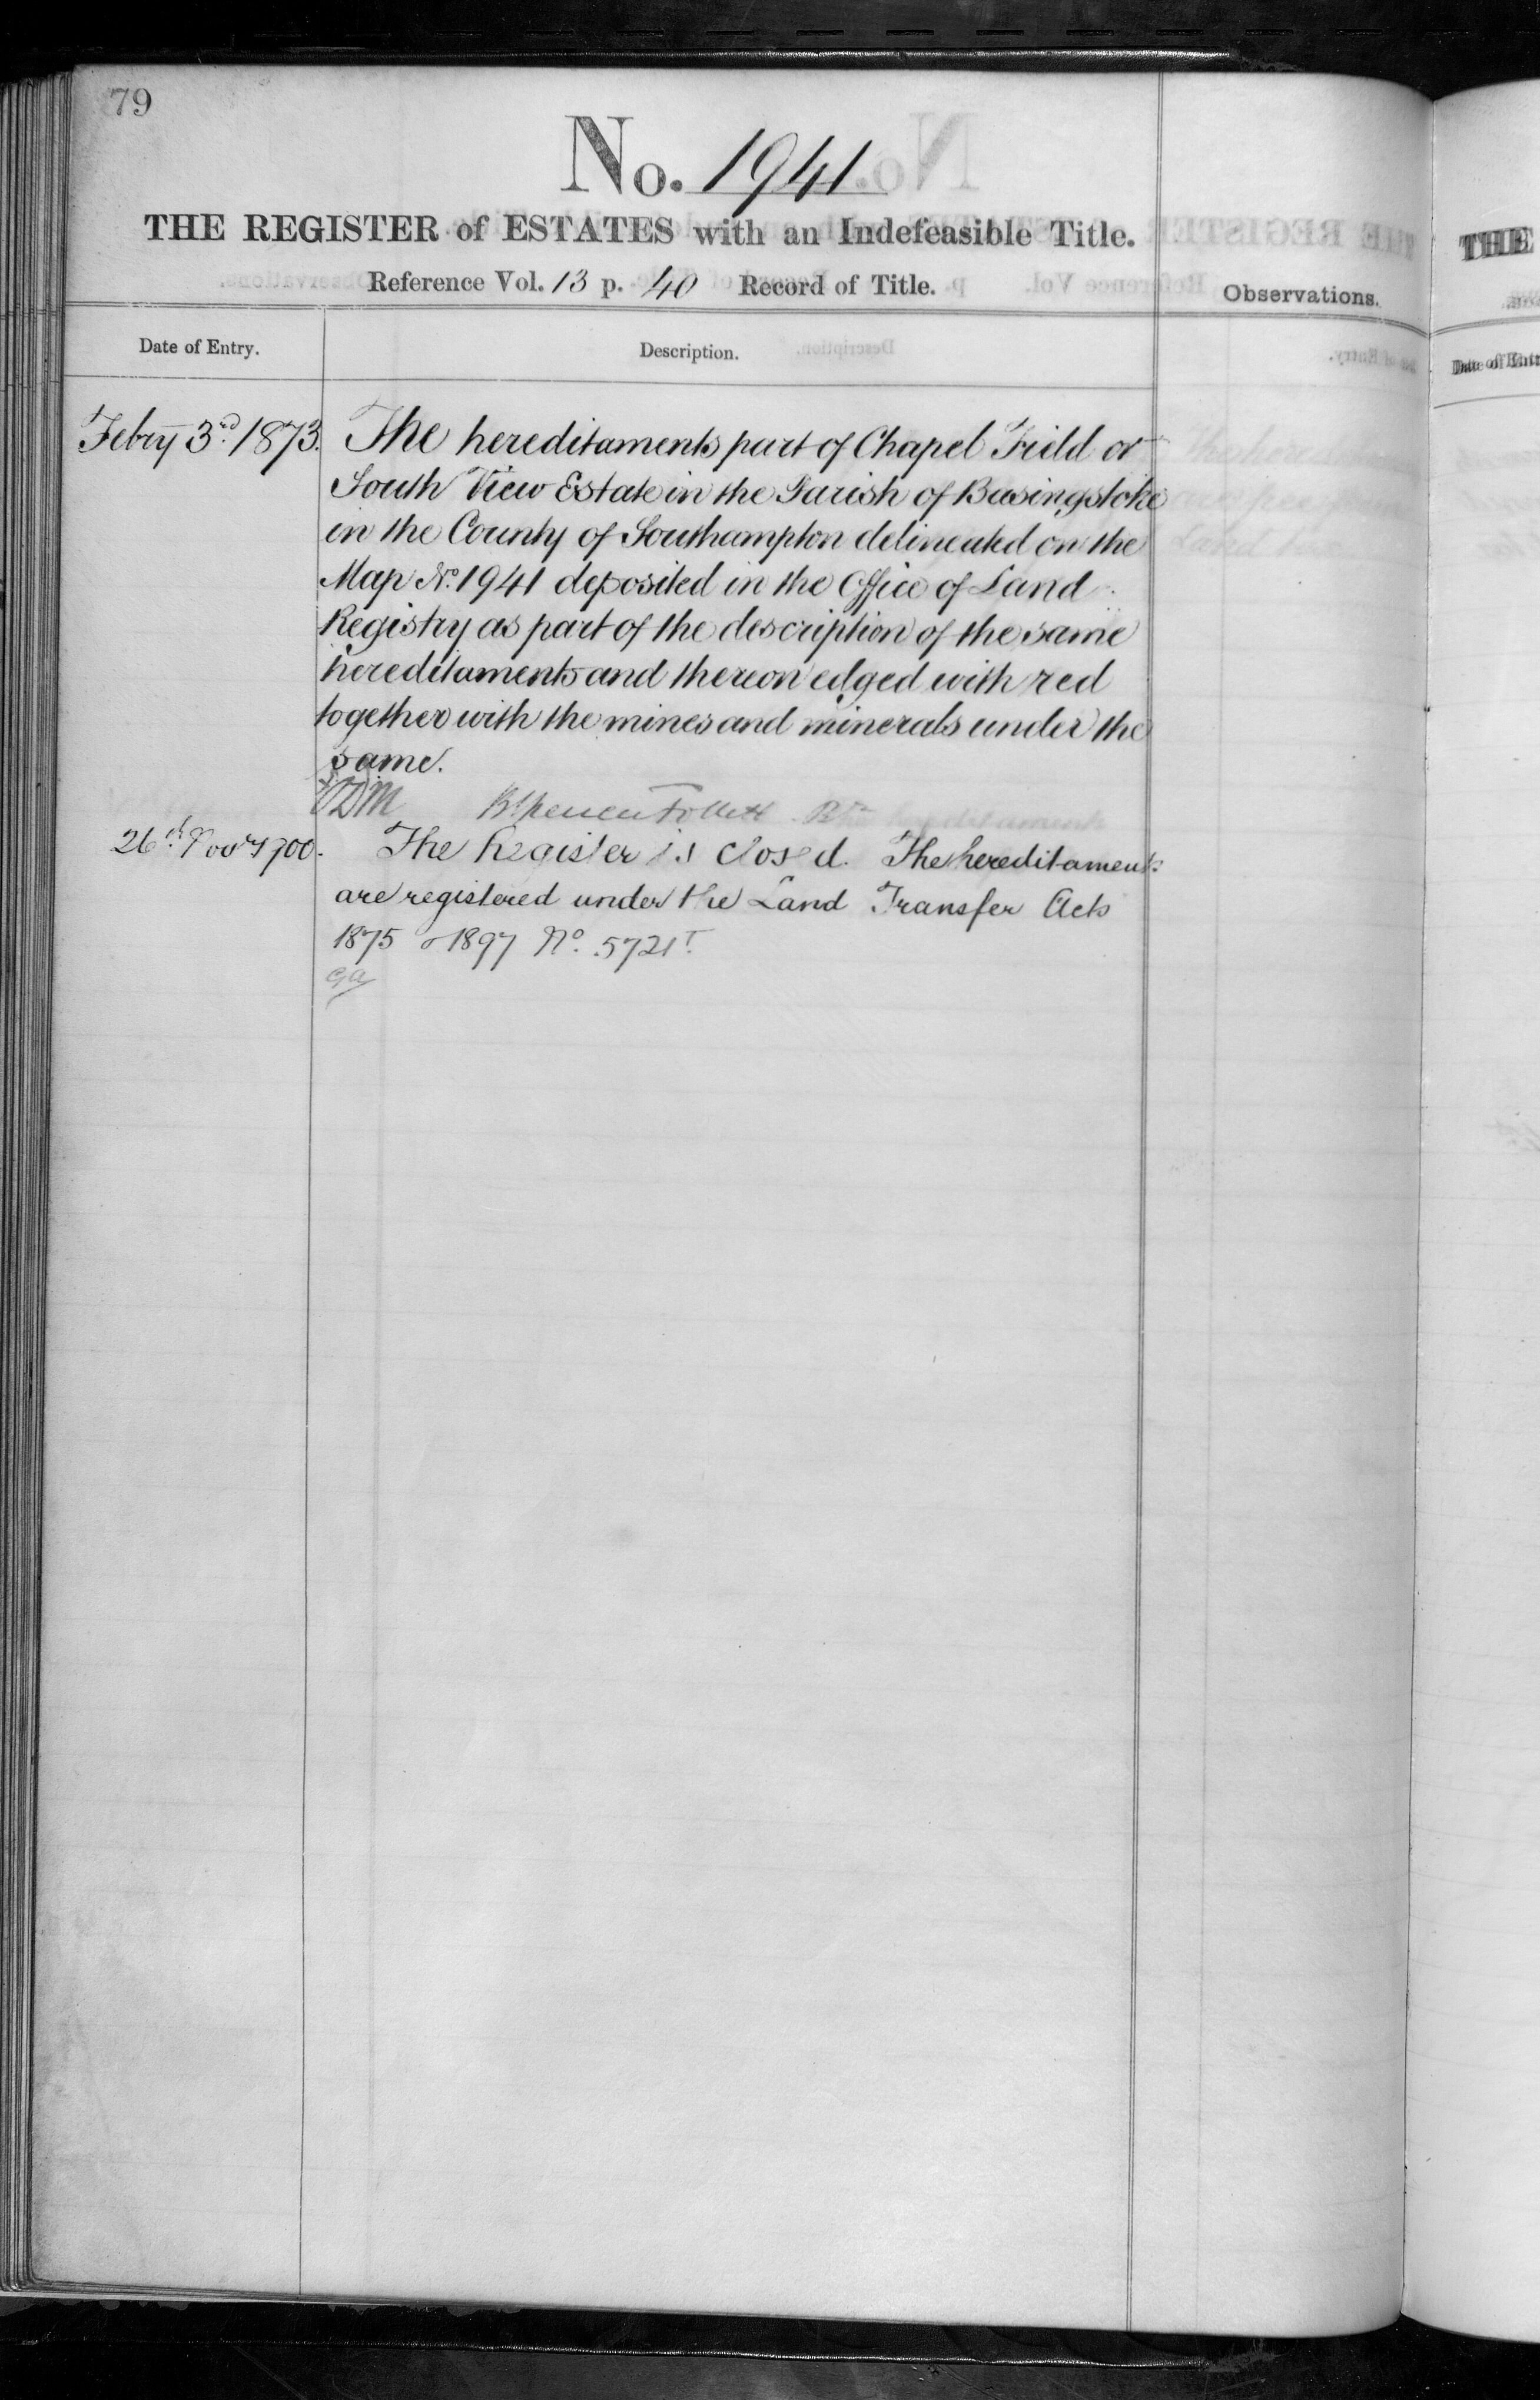 79
No. 1941
THE REGISTER of ESTATES with an Indefeasible Title.
Reference Vol. 13 p. 40 Record of Title.
Observations.
Date of Entry.
Description.
Febry 3rd 1873.
The hereditaments part of Chapel Field or
South View Estate in the Parish of Basingstoke
in the County of Southampton delineated on the
Map No. 1941 deposited in the Office of Land
Registry as part of the description of the same
hereditaments and thereon edged with red
together with the mines and minerals under the
same.
Follett
26th Novr 1900.
The Register is closed. The hereditaments
are registered under the Land Transfer Acts
1875 & 1897 No. 5721
THE